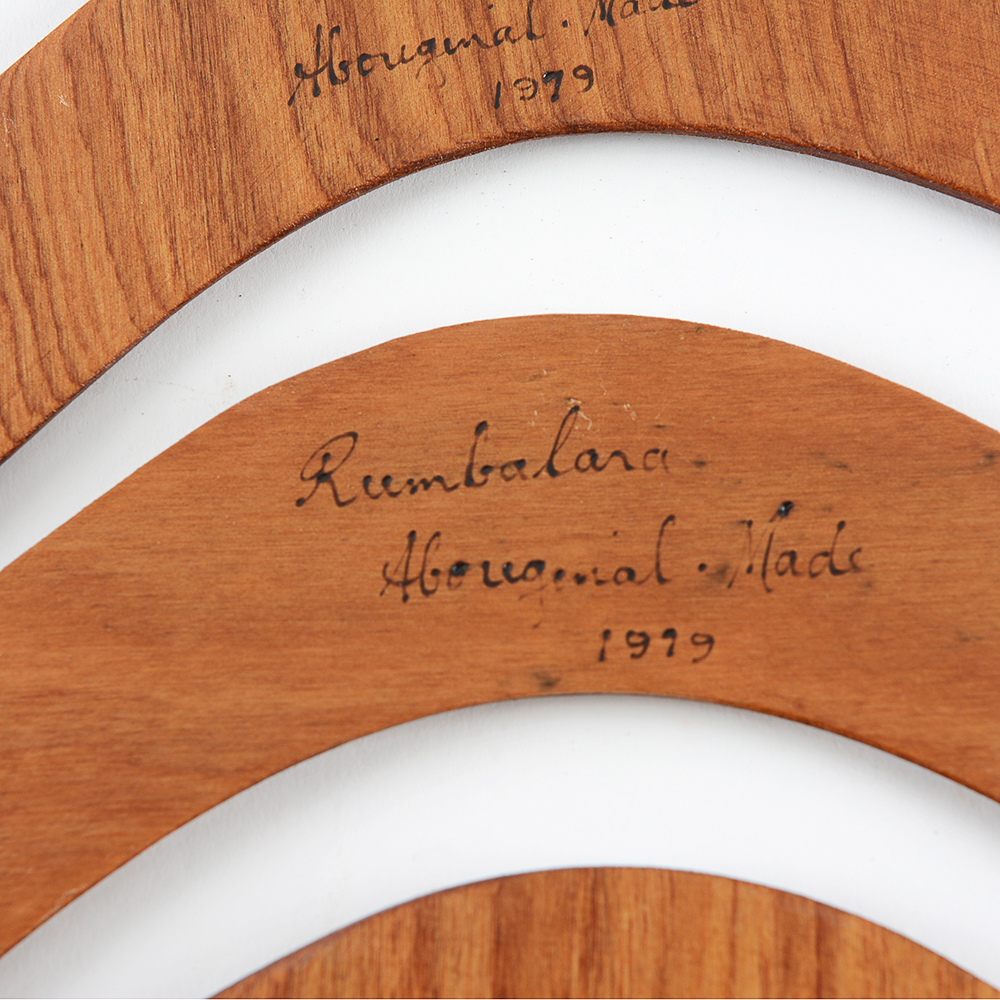 Aboriginal · Made
1979
Rumbalara
Aboriginal · Made
1979